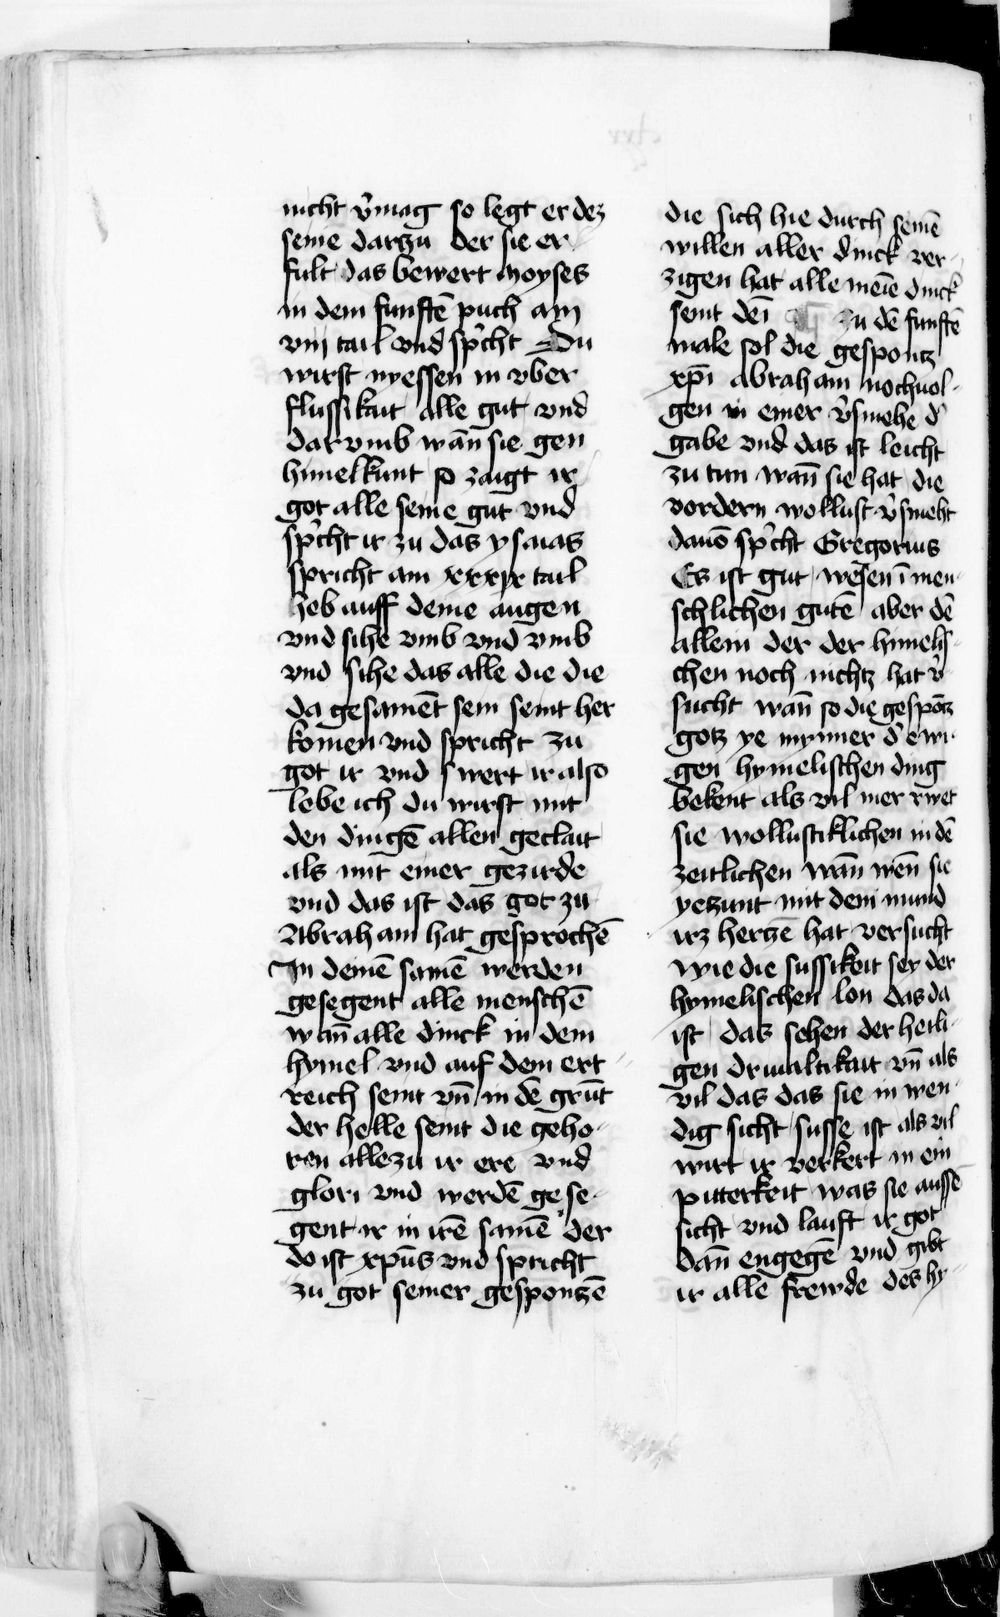 nicht v̓mag so legt er dez
seine darzu der sie er
fult das bewert moyses
in dem funftē puch am
viij tail vnd sp̓cht Du
wirst nyessen in vber
flussikait alle gut vnd
dar vmb wān sie gen
himel kumt so zaigt ir
got alle seine gut vnd
sp̓cht ir zu das ysaias
spricht am xxxxix tail
heb auff deine augen
vnd sihe vmb vnd vmb
vnd sihe das alle die die
da gesamēt sein seint her
komen vnd spricht zu
got ir vnd swert ir also
lebe ich du wirst mit
den dingē allen geclait
als mit einer gezirde
vnd das ist das got zu
Abraham hat gesprochē
In deinē samē werden
gesegent alle menschē
wān alle dinck in dem
hymel vnd auf dem ert
reich seint vn̄ in dē grūt
der helle seint die geho-
ren alle zu ir ere vnd
glori vnd werdē gese-
gent ir in irē samē der
do ist xpūs vnd spricht
zu got seiner gesponzē
die sich hie durch seinē
willen aller dinck ver-
zigen hat alle meīe dinck
seint deī zu dē funftē
male sol die gesponcz
xp̄i abraham nochuol-
gen in einer v̓smehe d̓
gabe vnd das ist leicht
zu tun wān sie hat die
vordern wollust v̓smeht
dauō sp̓cht Gregorius
Es ist gut wesen ī men-
schlichen gutē aber dē
allein der der himelis-
chen noch nichtz hat v̓-
sucht wān so die gespōtz
gotz ye mynner d̓ ewi-
gen hymelischen ding
bekent als vil mer rwet
sie wollustiklichen in dē
zeitlichen wān wēn sie
yetzunt mit dem mund
irz herczē hat versucht
wie die sussikeit sey der
hymelischen lon das da
ist das sehen der heili-
gen driualtikait vn̄ als
vil das das sie in wen-
dig sicht susse ist als vil
wirt ir verkert in ein
pitterkeit was sie aussē
sicht vnd lauft ir got
dan̄ engegē vnd gibt
ir alle frewde des hy-